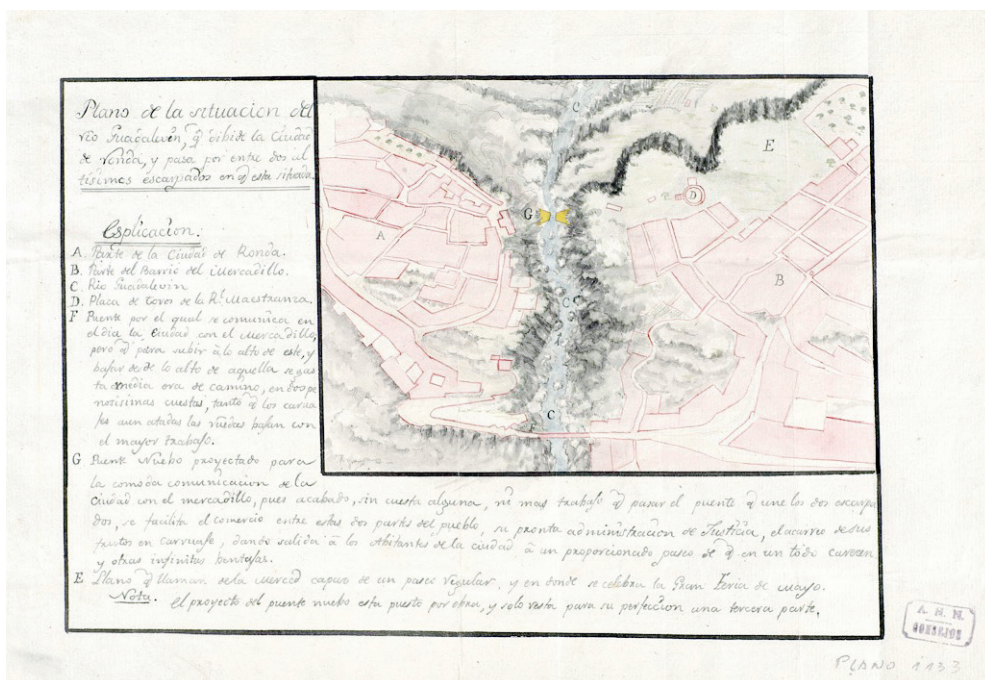 Plano de la situacion del
rio Guadalevin, q̃ dibide la Ciudad
de Ronda, y pasa por entre dos al
tisimos escarpados en q̃ esta situada.
Esplicacion.
A. Parte de la Ciudad de Ronda.
B. Parte del Barrio del Mercadillo.
C Rio Guadalevin
D. Placa de toros de la Rl. Maestranza.
F Puente por el qual se comunica en
el dia la Ciudad con el Mercadillo,
pero q̃ para subir à lo alto de este, y
bajar desde lo alto de aquella se gas
ta media ora de camino, en dos pe
nosisimas cuestas, tanto q̃ los carua
jes aun atadas las ruedas bajan con
el mayor trabajo.
G Puente Nuebo proyectado para
la comoda comunicacion de la
Ciudad con el mercadillo, pues acabado, sin cuesta alguna, ni mas trabajo q̃ pasar el puente q̃ une los dos escarpa
dos, se facilita el comercio entre estas dos partes del pueblo, su pronta administracion de Justicia, el acarreo de sus
frutos en carruaje, dando salida à los Abitantes de la ciudad à un proporcionado paseo de q̃ en un todo carecen
y otras infinitas bentajas.
E Llano q̃ llaman de la Merced capaz de un paseo regular, y en donde se celebra la Gran Feria de Mayo.
Nota. El proyecto del puente nuebo esta puesto por obra, y solo resta para su perfeccion una tercera parte.
C
E
D
G
A
B
C
C
A. H. N.
CONSEJOS
PLANO 1133